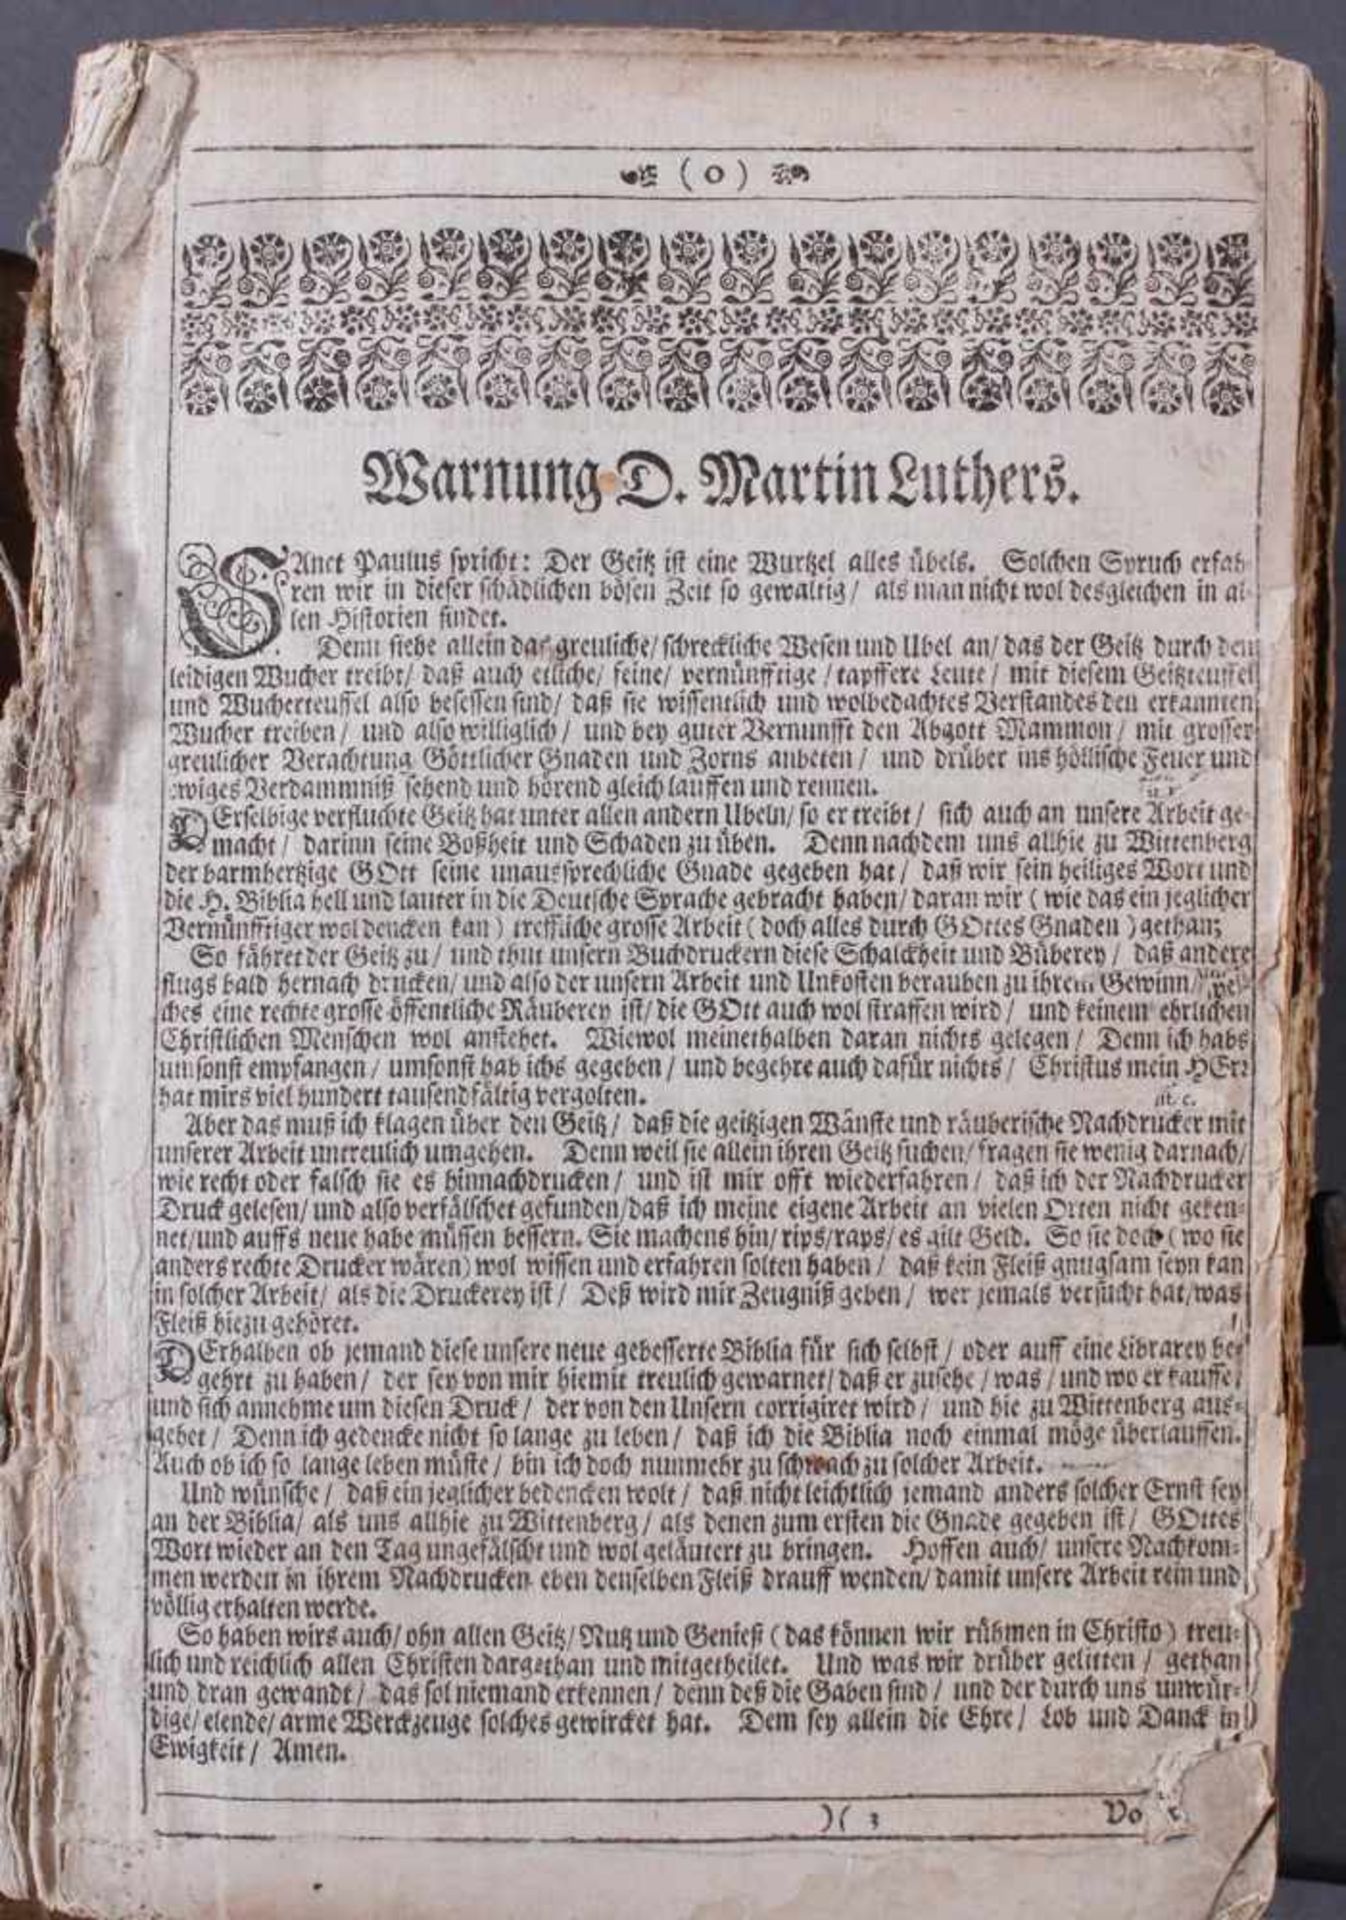 ( 0 )
Warnung D. Martin Luthers.
SAnct Paulus spricht: Der Geitz ist eine Wurtzel alles übels. Solchen Spruch erfah-
ren wir in dieser schädlichen bösen Zeit so gewaltig/ als man nicht wol desgleichen in al-
len Historien findet.
Denn siehe allein das greuliche/ schreckliche Wesen und Ubel an/ das der Geitz durch den
leidigen Wucher treibt/ daß auch etliche/ feine/ vernünfftige/ tapffere Leute/ mit diesem Geitzteuffel
und Wucherteuffel also besessen sind/ daß sie wissentlich und wolbedachtes Verstandes den erkannten
Wucher treiben/ und also williglich/ und bey guter Vernunfft den Abgott Mammon/ mit grosser
greulicher Verachtung Göttlicher Gnaden und Zorns anbeten/ und drüber ins höllische Feuer und
ewiges Verdammniß sehend und hörend gleich lauffen und rennen.
DErselbige verfluchte Geitz hat unter allen andern Ubeln/ so er treibt/ sich auch an unsere Arbeit ge-
macht/ darinn seine Boßheit und Schaden zu üben. Denn nachdem uns allhie zu Wittenberg
der barmhertzige GOtt seine unaussprechliche Gnade gegeben hat/ daß wir sein heiliges Wort und
die H. Biblia hell und lauter in die Deutsche Sprache gebracht haben/ daran wir (wie das ein jeglicher
Vernünfftiger wol dencken kan) treffliche grosse Arbeit (doch alles durch GOttes Gnaden) gethan;
So fähret der Geitz zu/ und thut unsern Buchdruckern diese Schalckheit und Büberey/ daß andere
flugs bald hernach drucken/ und also der unsern Arbeit und Unkosten berauben zu ihrem Gewinn/ wel-
ches eine rechte grosse öffentliche Räuberey ist/ die GOtt auch wol straffen wird/ und keinem ehrlichen
Christlichen Menschen wol anstehet. Wiewol meinethalben daran nichts gelegen/ Denn ich habs
umsonst empfangen/ umsonst hab ichs gegeben/ und begehre auch dafür nichts/ Christus mein HErr
hat mirs viel hundert tausendfältig vergolten.
Aber das muß ich klagen über den Geitz/ daß die geitzigen Wänste und räuberische Nachdrucker mit
unserer Arbeit untreulich umgehen. Denn weil sie allein ihren Geitz suchen/ fragen sie wenig darnach/
wie recht oder falsch sie es hinnachdrucken/ und ist mir offt wiederfahren/ daß ich der Nachdrucker
Druck gelesen/ und also verfälschet gefunden/ daß ich meine eigene Arbeit an vielen Orten nicht geken-
net/ und auffs neue habe müssen bessern. Sie machens hin/ rips/ raps/ es gilt Geld. So sie doch (wo sie
anders rechte Drucker wären) wol wissen und erfahren solten haben/ daß kein Fleiß gnugsam seyn kan
in solcher Arbeit/ als die Druckerey ist/ Deß wird mir Zeugniß geben/ wer jemals versucht hat/ was
Fleiß hiezu gehöret.
DErhalben ob jemand diese unsere neue gebesserte Biblia für sich selbst/ oder auff eine Librarey be-
gehrt zu haben/ der sey von mir hiemit treulich gewarnet/ daß er zusehe/ was/ und wo er kauffe/
und sich annehme um diesen Druck/ der von den Unsern corrigiret wird/ und hie zu Wittenberg aus-
gehet/ Denn ich gedencke nicht so lange zu leben/ daß ich die Biblia noch einmal möge überlauffen.
Auch ob ich so lange leben müste/ bin ich doch nunmehr zu schwach zu solcher Arbeit.
Und wünsche/ daß ein jeglicher bedencken wolt/ daß nicht leichtlich jemand anders solcher Ernst sey
an der Biblia/ als uns allhie zu Wittenberg/ als denen zum ersten die Gnade gegeben ist/ GOttes
Wort wieder an den Tag ungefälscht und wol geläutert zu bringen. Hoffen auch/ unsere Nachkom-
men werden in ihrem Nachdrucken eben denselben Fleiß drauff wenden/ damit unsere Arbeit rein und
völlig erhalten werde.
So haben wirs auch/ ohn allen Geitz/ Nutz und Genieß (das können wir rühmen in Christo) treu-
lich und reichlich allen Christen dargethan und mitgetheilet. Und was wir drüber gelitten/ gethan
und dran gewandt/ das sol niemand erkennen/ denn deß die Gaben sind/ und der durch uns unwür-
dige/ elende/ arme Werckzeuge solches gewircket hat. Dem sey allein die Ehre/ Lob und Danck in
Ewigkeit/ Amen.
)( 3